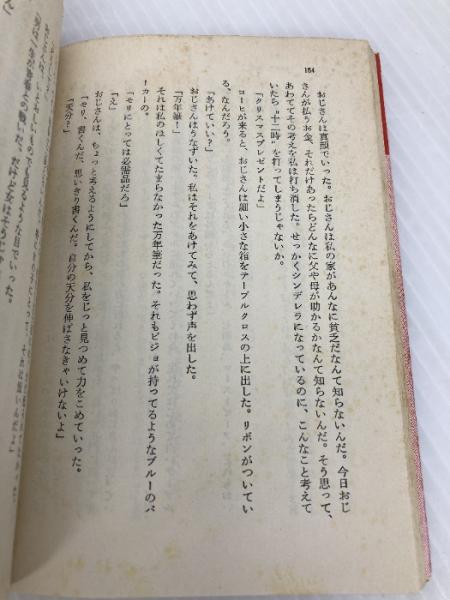 154
おじさんは真顔でいった。おじさんは私の家があんなに貧乏だなんて知らないんだ。今日おじ
さんが払うお金、それだけあったらどんなに父や母が助かるかなんて知らないんだ。そう思って、
あわててその考えを私は打ち消した。せっかくシンデレラになっているのに、こんなこと考えて
いたら〝十二時〟を打ってしまうじゃないか。
「クリスマスプレゼントだよ」
コーヒが来ると、おじさんは細い小さな箱をテーブルクロスの上に出した。リボンがついてい
る、なんだろう。
「あけていい?」
おじさんはうなずいた。私はそれをあけてみて、思わず声を出した。
「万年筆!」
それは私のほしくてたまらなかった万年筆だった。それもビジョが持ってるようなブルーのパ
ーカーの。
「モリにとっては必需品だろ」
「え」
おじさんは、ちょっと考えるようにしてから、私をじっと見つめて力をこめていった。
「モリ、書くんだ。思いきり書くんだ。自分の天分を伸ばさなきゃいけないよ」
「天分?」